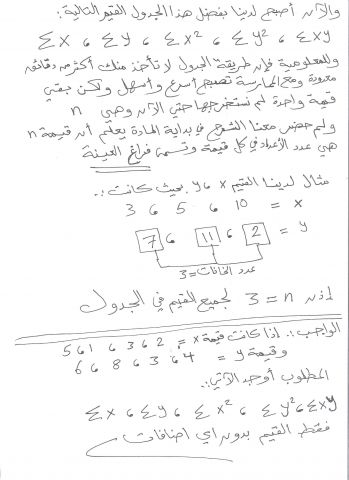 والآن أصبح لدينا بفضل هذا الجدول القيم التالية:
Σx ، Σy ، Σx² ، Σy² ، Σxy
وللمعلومية فإن طريقة الجدول لا تأخذ منك أكثر من دقائق
معدودة ومع الممارسة تصبح أسرع وأسهل ولكن بقي
قيمة واحدة لم نستخرجها حتى الآن وهي n
ولمن حضر معنا الشرح في بداية المادة يعلم أن قيمة n
هي عدد الأعداد في كل قيمة وتسمى فراغ العينة
مثال لدينا القيم x و y بحيث كانت:
3 ، 5 ، 10 = x
7 ، 11 ، 2 = y
عدد الخانات = 3
إذن n = 3 لجميع القيم في الجدول
الواجب: إذا كانت قيمة x = 2 ، 3 ، 1 ، 5
وقيمة y = 4 ، 3 ، 8 ، 6
المطلوب أوجد الآتي:
Σx ، Σy ، Σx² ، Σy² ، Σxy
فقط القيم بدون أي إضافات